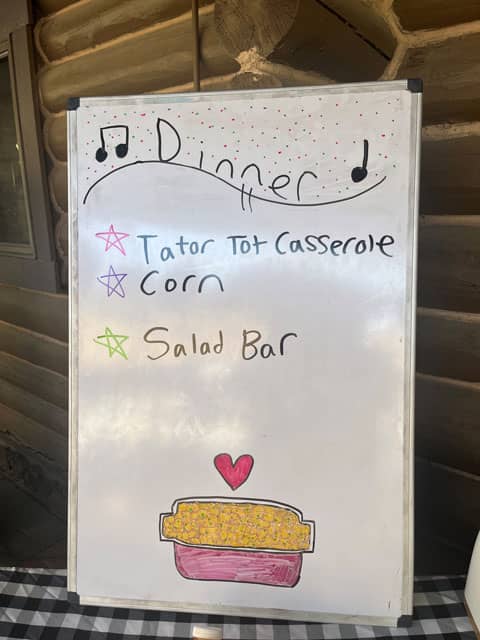 Dinner
Tator Tot Casserole
Corn
Salad Bar